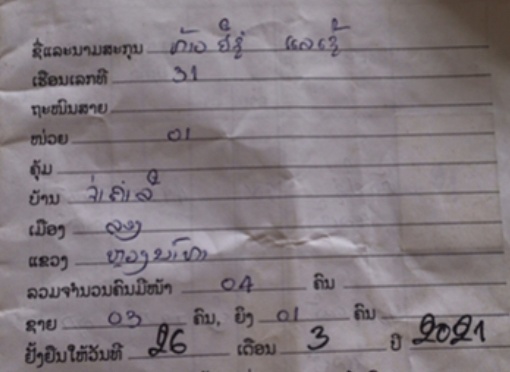 ຊື່ແລະນາມສະກຸນ ທ້າວ ຢີຊູ່ ແລເຊີ້
ເຮືອນເລກທີ 31
ຖະໜົນສາຍ
ໜ່ວຍ 01
ຄຸ້ມ
ບ້ານ ຈ່າຄຳລື
ເມືອງ ລອງ
ແຂວງ ຫຼວງນ້ຳທາ
ລວມຈຳນວນຄົນມີໜ້າ 04 ຄົນ
ຊາຍ 03 ຄົນ, ຍິງ 01 ຄົນ
ຢັ້ງຢືນໃຫ້ວັນທີ 26 ເດືອນ 3 ປີ 2021